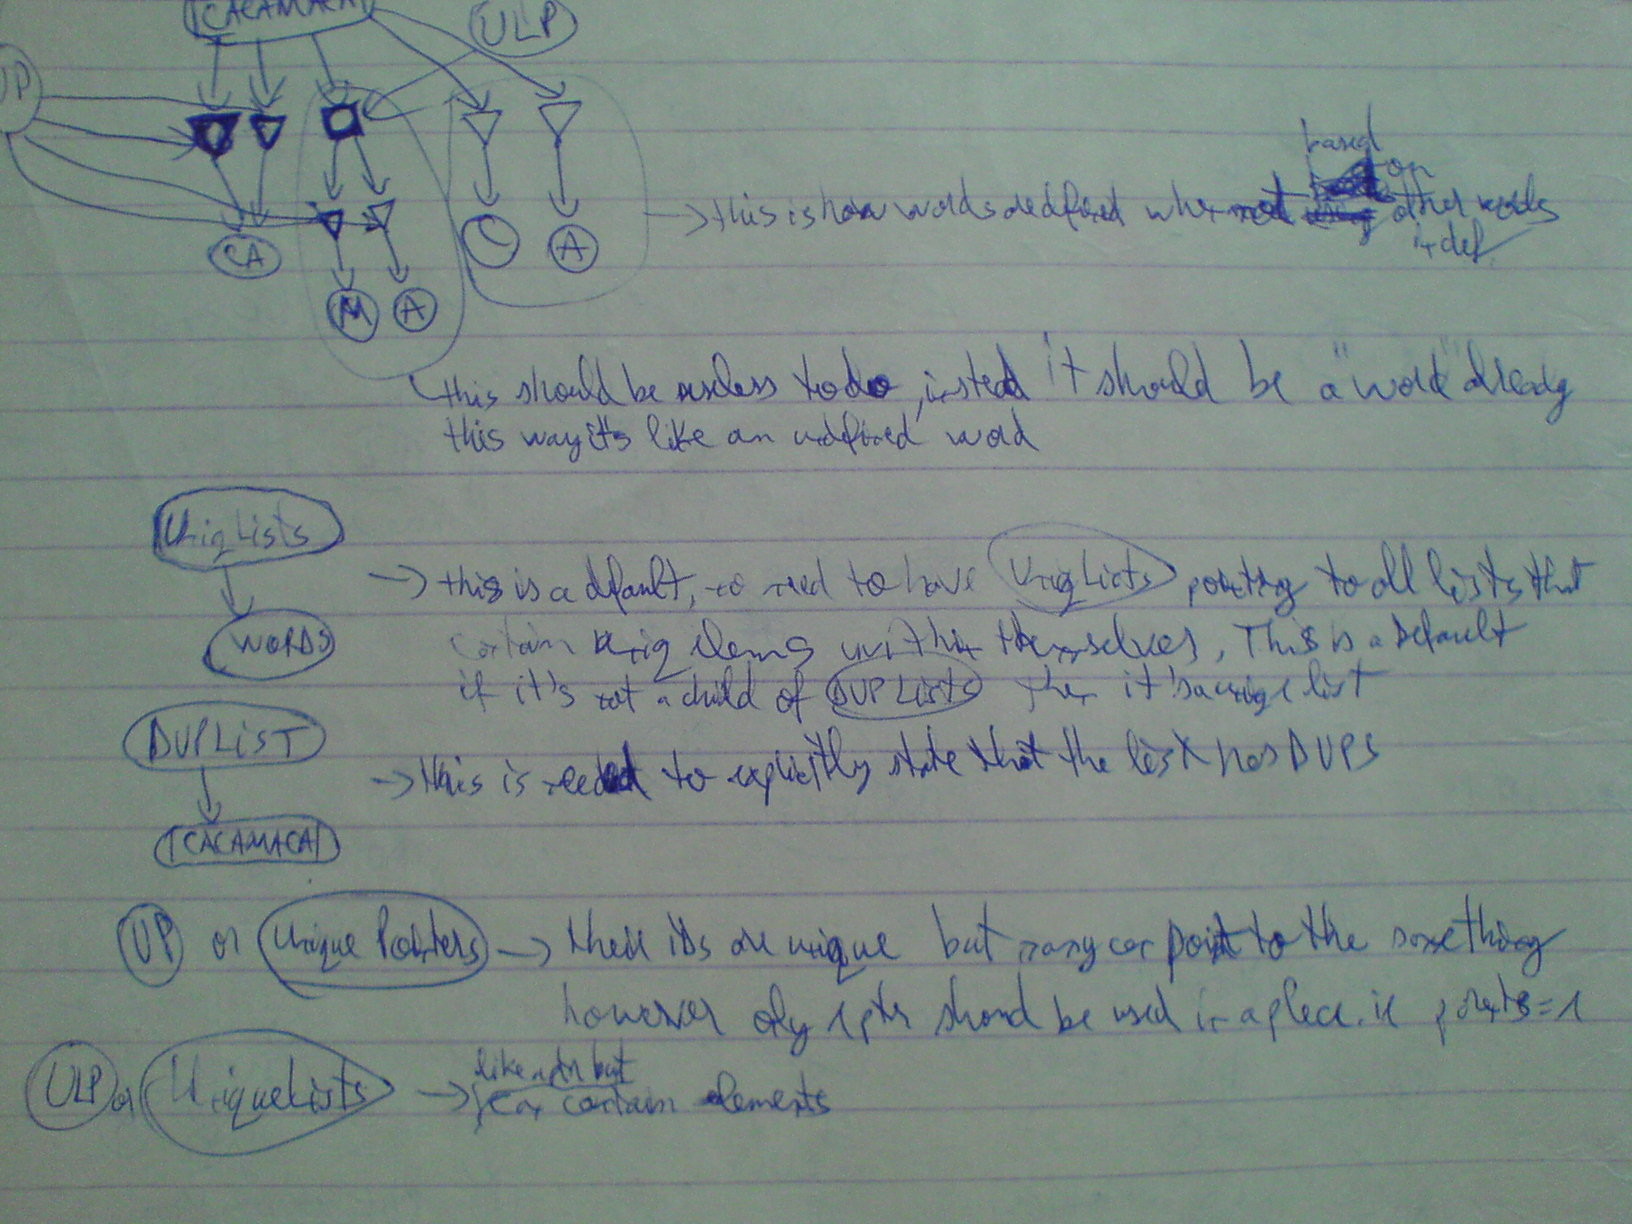 |CACAMACA|
ULP
UP
based
on
this is how words are defined when not other words
in def
CA
C
A
M
A
this should be useless to do, instead it should be a "word" already
this way it's like an undefined word
UniqLists
→ this is a default, no need to have UniqLists pointing to all lists that
WORDS
contain uniq items within themselves, This is a Default
if it's not a child of DUPLists then it's a uniq list
DUPLIST
→ this is needed to explicitly state that the list has DUPS
|CACAMACA|
UP or Unique Pointers → their IDs are unique but many can point to the something
however only 1 ptr should be used in a place. ie parents=1
like a ptr but
ULP or UniqueLists → can contain elements